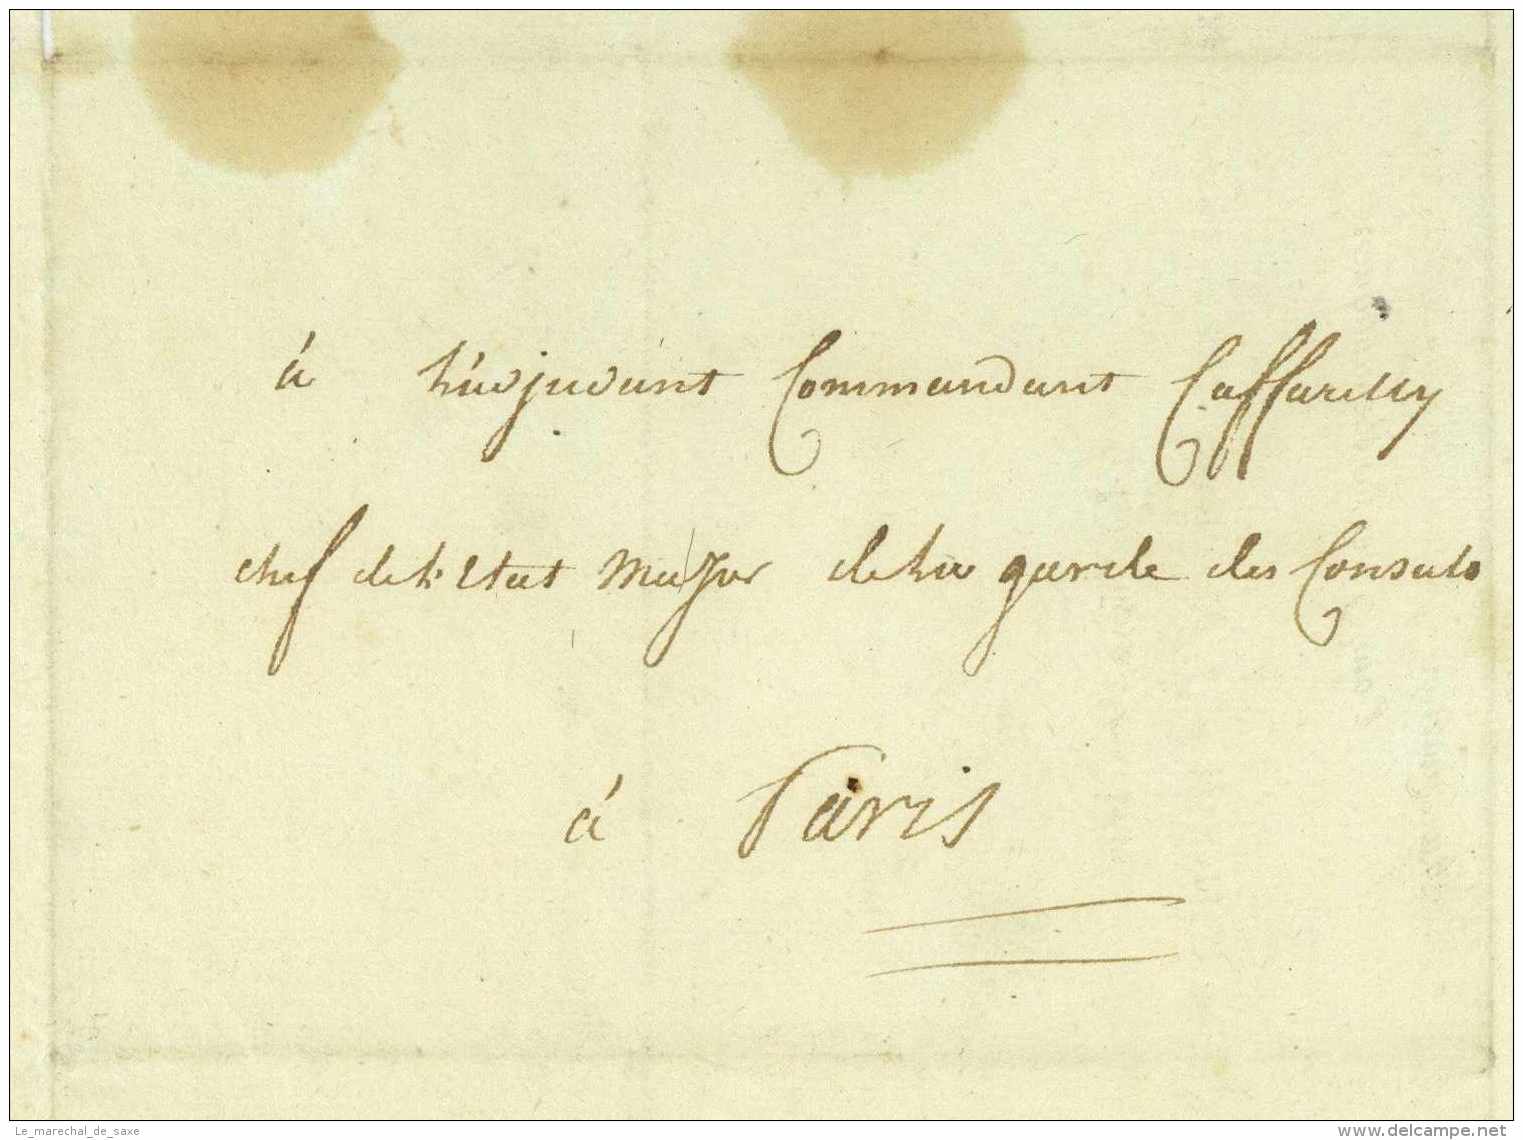 à l'adjudant Commandant Caffarelly
chef de l'etat Major de la garde des Consuls
à Paris
Le_marechal_de_saxe
www.delcampe.net